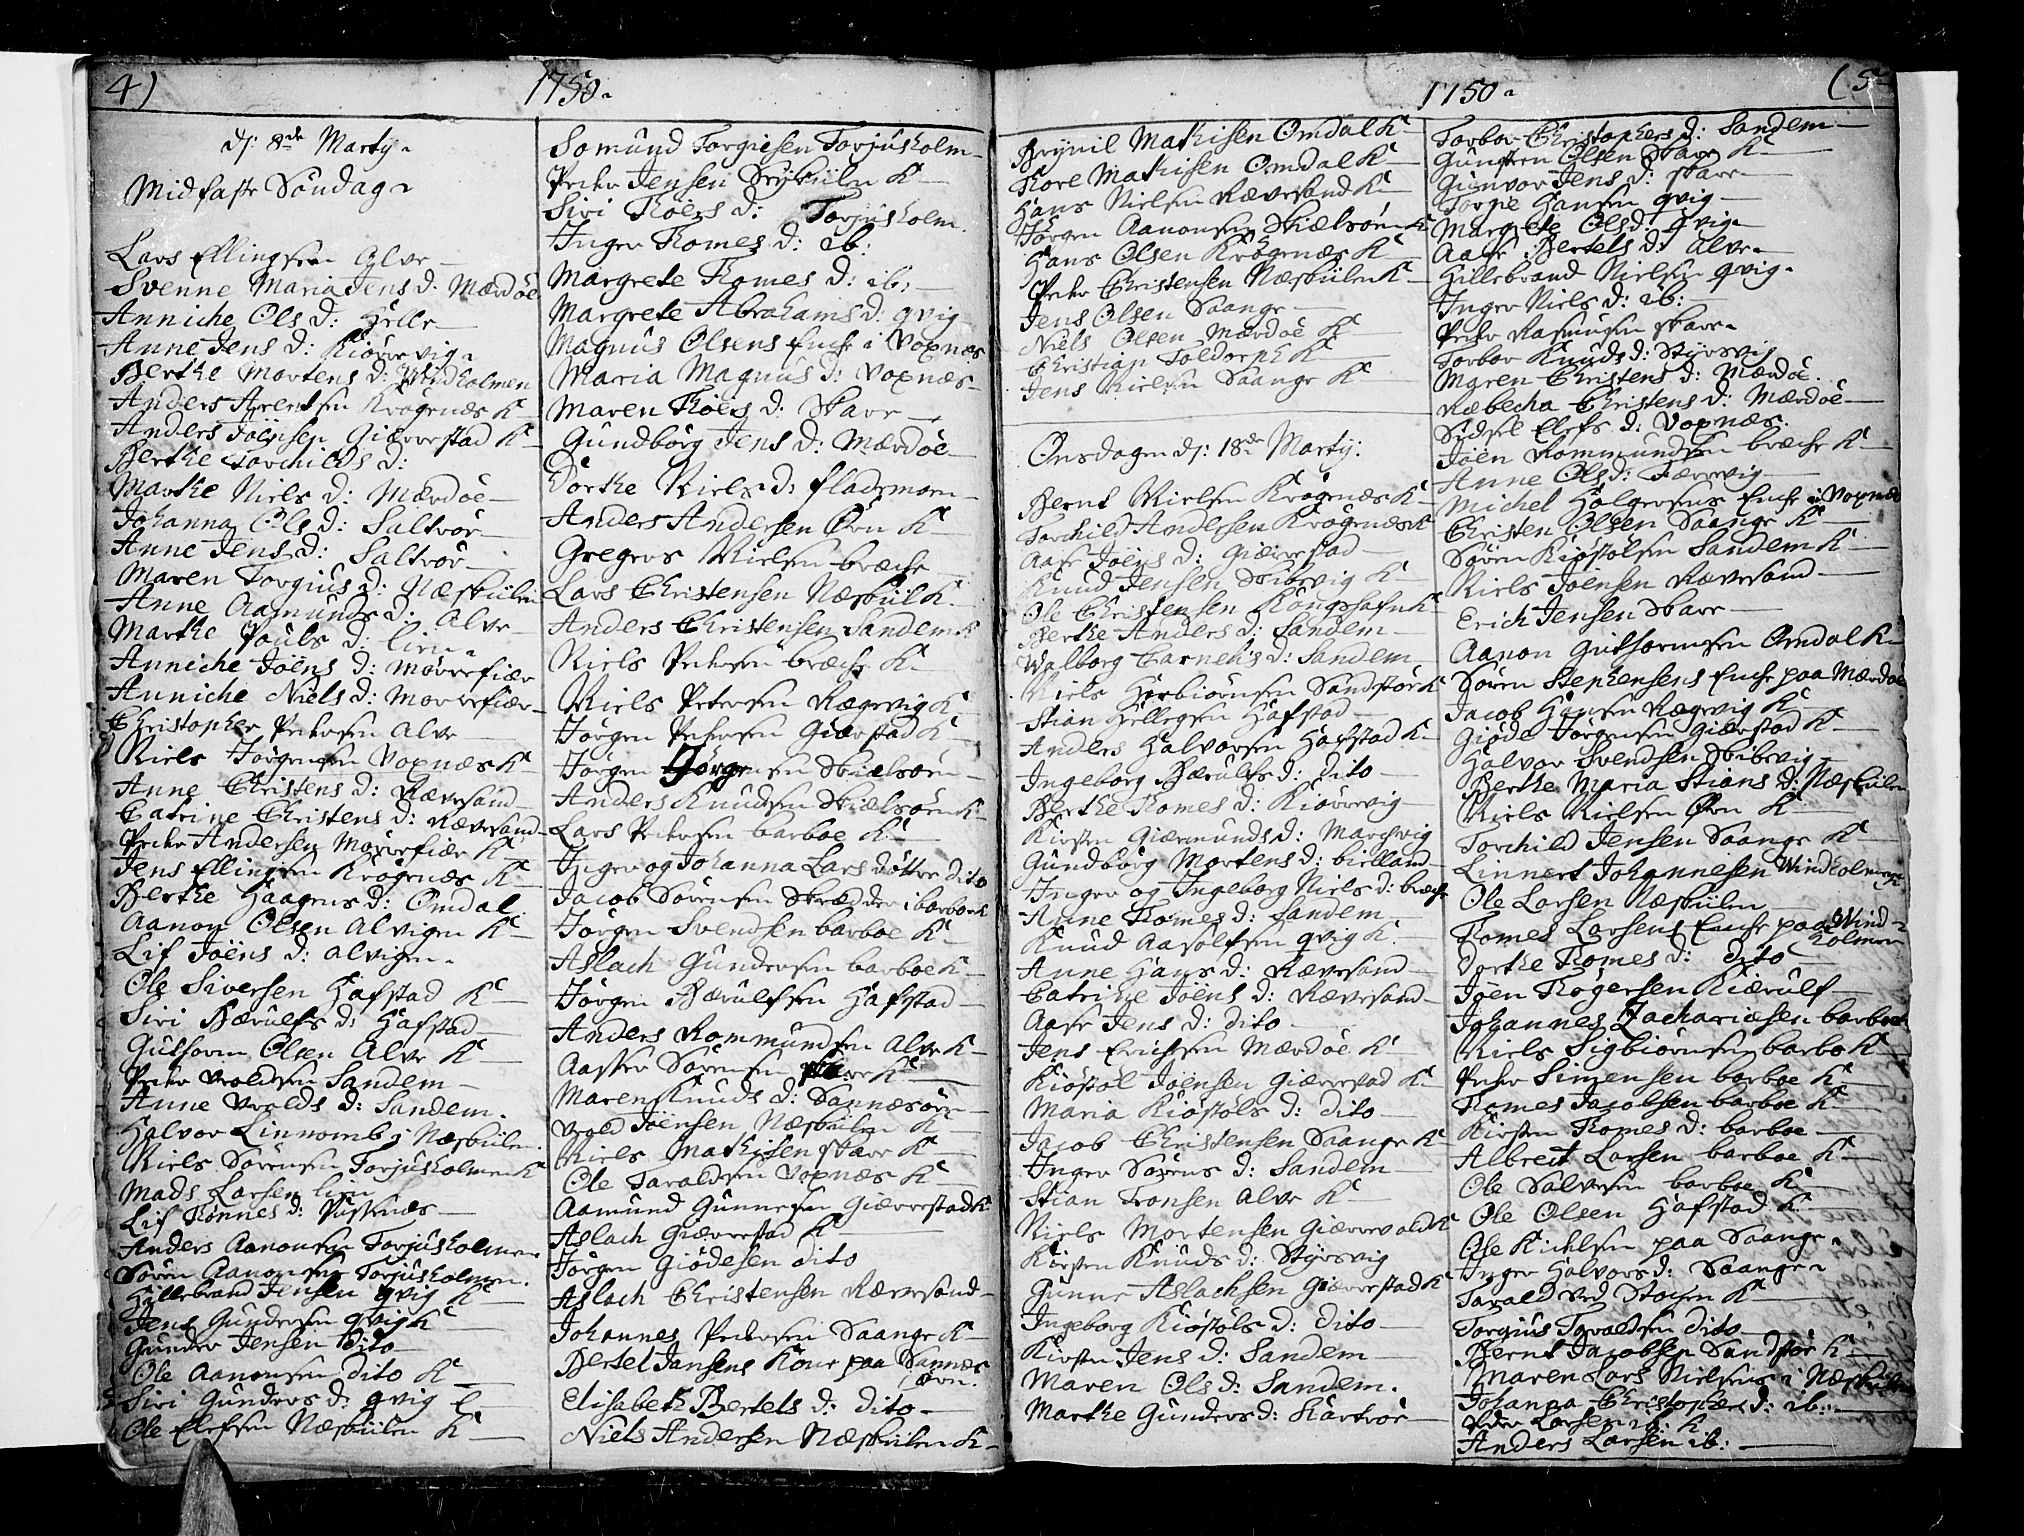 4)
1750
dj: 8de Marty
Midfaste Söndag
Lars Ellingsen Alve
Svenne Maria Jens d: Mærdöe
Anniche Ols d: Helle
Anne Jens d: Kiörrevig
Berthe Mortens d: Windholmen
Anders Arentsen Krögenæs K
Anders Jöensen Giærrestad K
Berthe Torchilds d:
Marthe Niels d: Mærdöe
Johanna Ols d: Saltrör
Anne Jens d: Saltrör
Maren Torgius d: Næsbülen
Anne Aamunds d: Alve
Marthe Pouls d: lien
Anniche Jöens d: Morrefiær
Anniche Niels d: Morrefiær
Christopher Pedersen Alve
Niels Jörgensen Voxnæs K
Anne Christens d: Rævesand
Catrine Christens d: Rævesand
Peder Andersen Morrefiær K
Jens Ellingsen Krögenæs K
Berthe Haagens d: Omdal
Aanon Olsen Alvigen K
Lif Jöens d: alvigen
Ole Siversen Hafstad K
Siri Bærulfs d: Hafstad
Guthorm Olsen Alve K
Peder Vroldsen Sandem
Anne Vrolds d: Sandem
Halvor Linnom Næsbülen
Niels Sörensen Torjusholmen K
Mads Larsen lien
Lif Tönnes d: Püskenæs
Anders Aanonsen Torjusholmen
Sören Aanonsen Torjusholmen
Hillebrand Jensen qvig K
Jens Gundersen qvig K
Gunder Jensen dito
Ole Aanonsen dito K
Siri Gunders d: qvig
Ole Elefsen Næsbülen K
Somund Torgiesen Torjusholm
Peder Jensen Brybülen K
Siri Thöers d: Torjusholm
Inger Thomes d: ib:
Margrete Thomes d: ib:
Margrete Abrahams d: qvig
Magnus Olsens Enche i Voxnæs
Maria Magnus d: Voxnæs
Maren Thöers d: Skare
Gundborg Jens d: Mærdöe
Dorthe Niels d: flademoen
Anders Andersen Örn K
Gregers Nielsen bræche
Lars Christensen Næsbül K
Anders Christensen Sandem K
Niels Pedersen bræche K
Niels Petersen Rægevig K
Jörgen Pedersen Giærstad K
Jörgen Jörgensen Skiælsöen
Anders Knudsen Skiælsöen K
Lars Pedersen barboe K
Inger og Johanna Lars döttre dito
Jacob Sörensen Skrædder i barboe K
Jörgen Svendsen barboe K
Aslach Gundersen barboe K
Jörgen Bærulfsen Hafstad
Anders Rommundsen Alve K
Aasser Sörensen Skare K
Maren Knuds d: Sannæsöre
Vrold Jöensen Næsbülen K
Niels Mathisen Skare K
Ole Taraldsen Voxnæs K
Aamund Gunnesen Giærrestad K
Aslach Giærrestad K
Jörgen Giödesen dito
Aslach Christensen Rævesand
Johannes Pedersen Saange K
Bertel Jansens Kone paa Sannæs
örn.
Elisabeth Bertels d: dito
Niels Andersen Næsbülen K
1750
(5
Brynil Mathisen Omdal K
Thore Mathisen Omdal K
Hans Nielsen Rævesand K
Jörgen Aanonsen Skiælsöen K
Hans Olsen Krögenæs K
Peder Christensen Næsbülen K
Jens Olsen Saange
Niels Olsen Mærdöe K
Christian Toldorph K
Jens Nielsen Saange K
Onsdagen dj: 18de Marty:
Bernt Nielsen Krögenæs K
Torchild Andersen Krögenæs K
Aase Jöens d: Giærrestad
Knud Jensen Skibsvig K
Ole Christensen Kongshafn K
Berthe Anders d: Sandem
Walborg Cornelis d: Sandem
Niels Herbiörnsen Sandstöe K
Stian Tellegsen Hafstad
Anders Halvorsen Hafstad K
Ingeborg Bærulfs d: dito
Berthe Thomes d: Kiörrevig
Kirsten Giærmunds d: Marchvig
Gundborg Mortens d: bielland
Inger og Ingeborg Niels d: bræche
Anne Thomes d: Sandem
Knud Aasolfsen qvig K
Anne Hans d: Rævesand
Catrine Jöens d: Rævesand
Aase Jens d: dito
Jens Erichsen Mærdöe K
Kiöstöl Jöensen Giærrestad K
Maria Kiöstöls d: dito
Jacob Christensen Saange K
Inger Sörens d: Sandem
Stian Tronsen Alve K
Niels Mortensen Giærrevold K
Kirsten Knuds d: Styrsvig
Gunne Aslachsen Giærrestad K
Ingeborg Kiöstöls d: dito
Kirsten Jens d: Sandem
Maren Ols d: Sandem
Marthe Gunders d: Kartröe
Torbor Christophers d: Sandem
Gunsten Olsen Skare K
Gunvor Jens d: Skare
Torgie Hansen qvig
Margrete Ols d: qvig
Aase Bertels d: Alve
Hillebrand Nielsen qvig
Inger Niels d: ib:
Peder Rasmusen Skare
Torbor Knuds d: Styrsvig
Maren Christens d: Mærdöe
Ræbecha Christens d: Mærdöe
Sidsel Elefs d: Voxnæs
Jöen Rommundsen bræche K
Anne Ols d: Færrevig
Michel Holgersens Enche i Voxnæs
Christen Olsen Saange K
Sören Kiöstölsen Sandem K
Niels Jöensen Rævesand
Erich Jensen Skare
Aanon Guthormsen Omdal K
Sören Stephensens Enche paa Mærdöe
Jacob Hansen Rægevig K
Giöde Jörgensen Giærstad K
Halvor Svendsen Skibsvig
Berthe Maria Stians d: Næsbülen
Niels Nielsen Örn K
Torchild Jensen Saange K
Linnert Johannesen Windholmen K
Ole Larsen Næsbülen
Tomes Larsens Enche paa Wind-
holmen
Dorthe Thomes d: dito
Jöen Rögersen Kiærülf
Johannes Zachariæsen barboe
Niels Sigbiörnsen barbo K
Peder Simensen barboe K
Thomes Jacobsen barboe K
Kirsten Thomes d: barboe
Albreit Larsen barboe K
Ole Salvesen barboe K
Ole Olsen Hafstad K
Ole Kichlsen paa Saange
Inger Halvors d: Saange
Tarald ved Stoyen K
Torgius Taraldsen dito
Bernt Jacobsen Sandstöe K
Maren Lars Nielsens i Næsbülen
Johanna Christophers d: ib:
Peder Larsen ib: K
Anders Larsen ib: